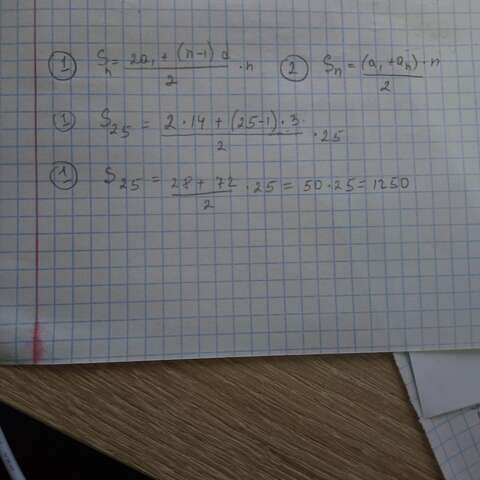 ① Sn = (2a₁ + (n-1) d)/2 · n ② Sn = ((a₁ + an) · n)/2
① S₂₅ = (2 · 14 + (25-1) · 3)/2 · 25
① S₂₅ = (28 + 72)/2 · 25 = 50 · 25 = 1250